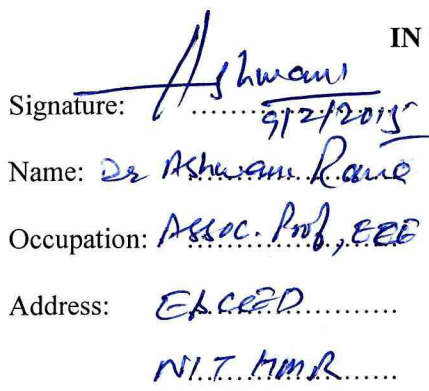 IN
Signature: Ashwani
9/2/2015
Name: Dr Ashwani Rana
Occupation: Assoc. Prof, EEE
Address: E&CED
NIT HMR